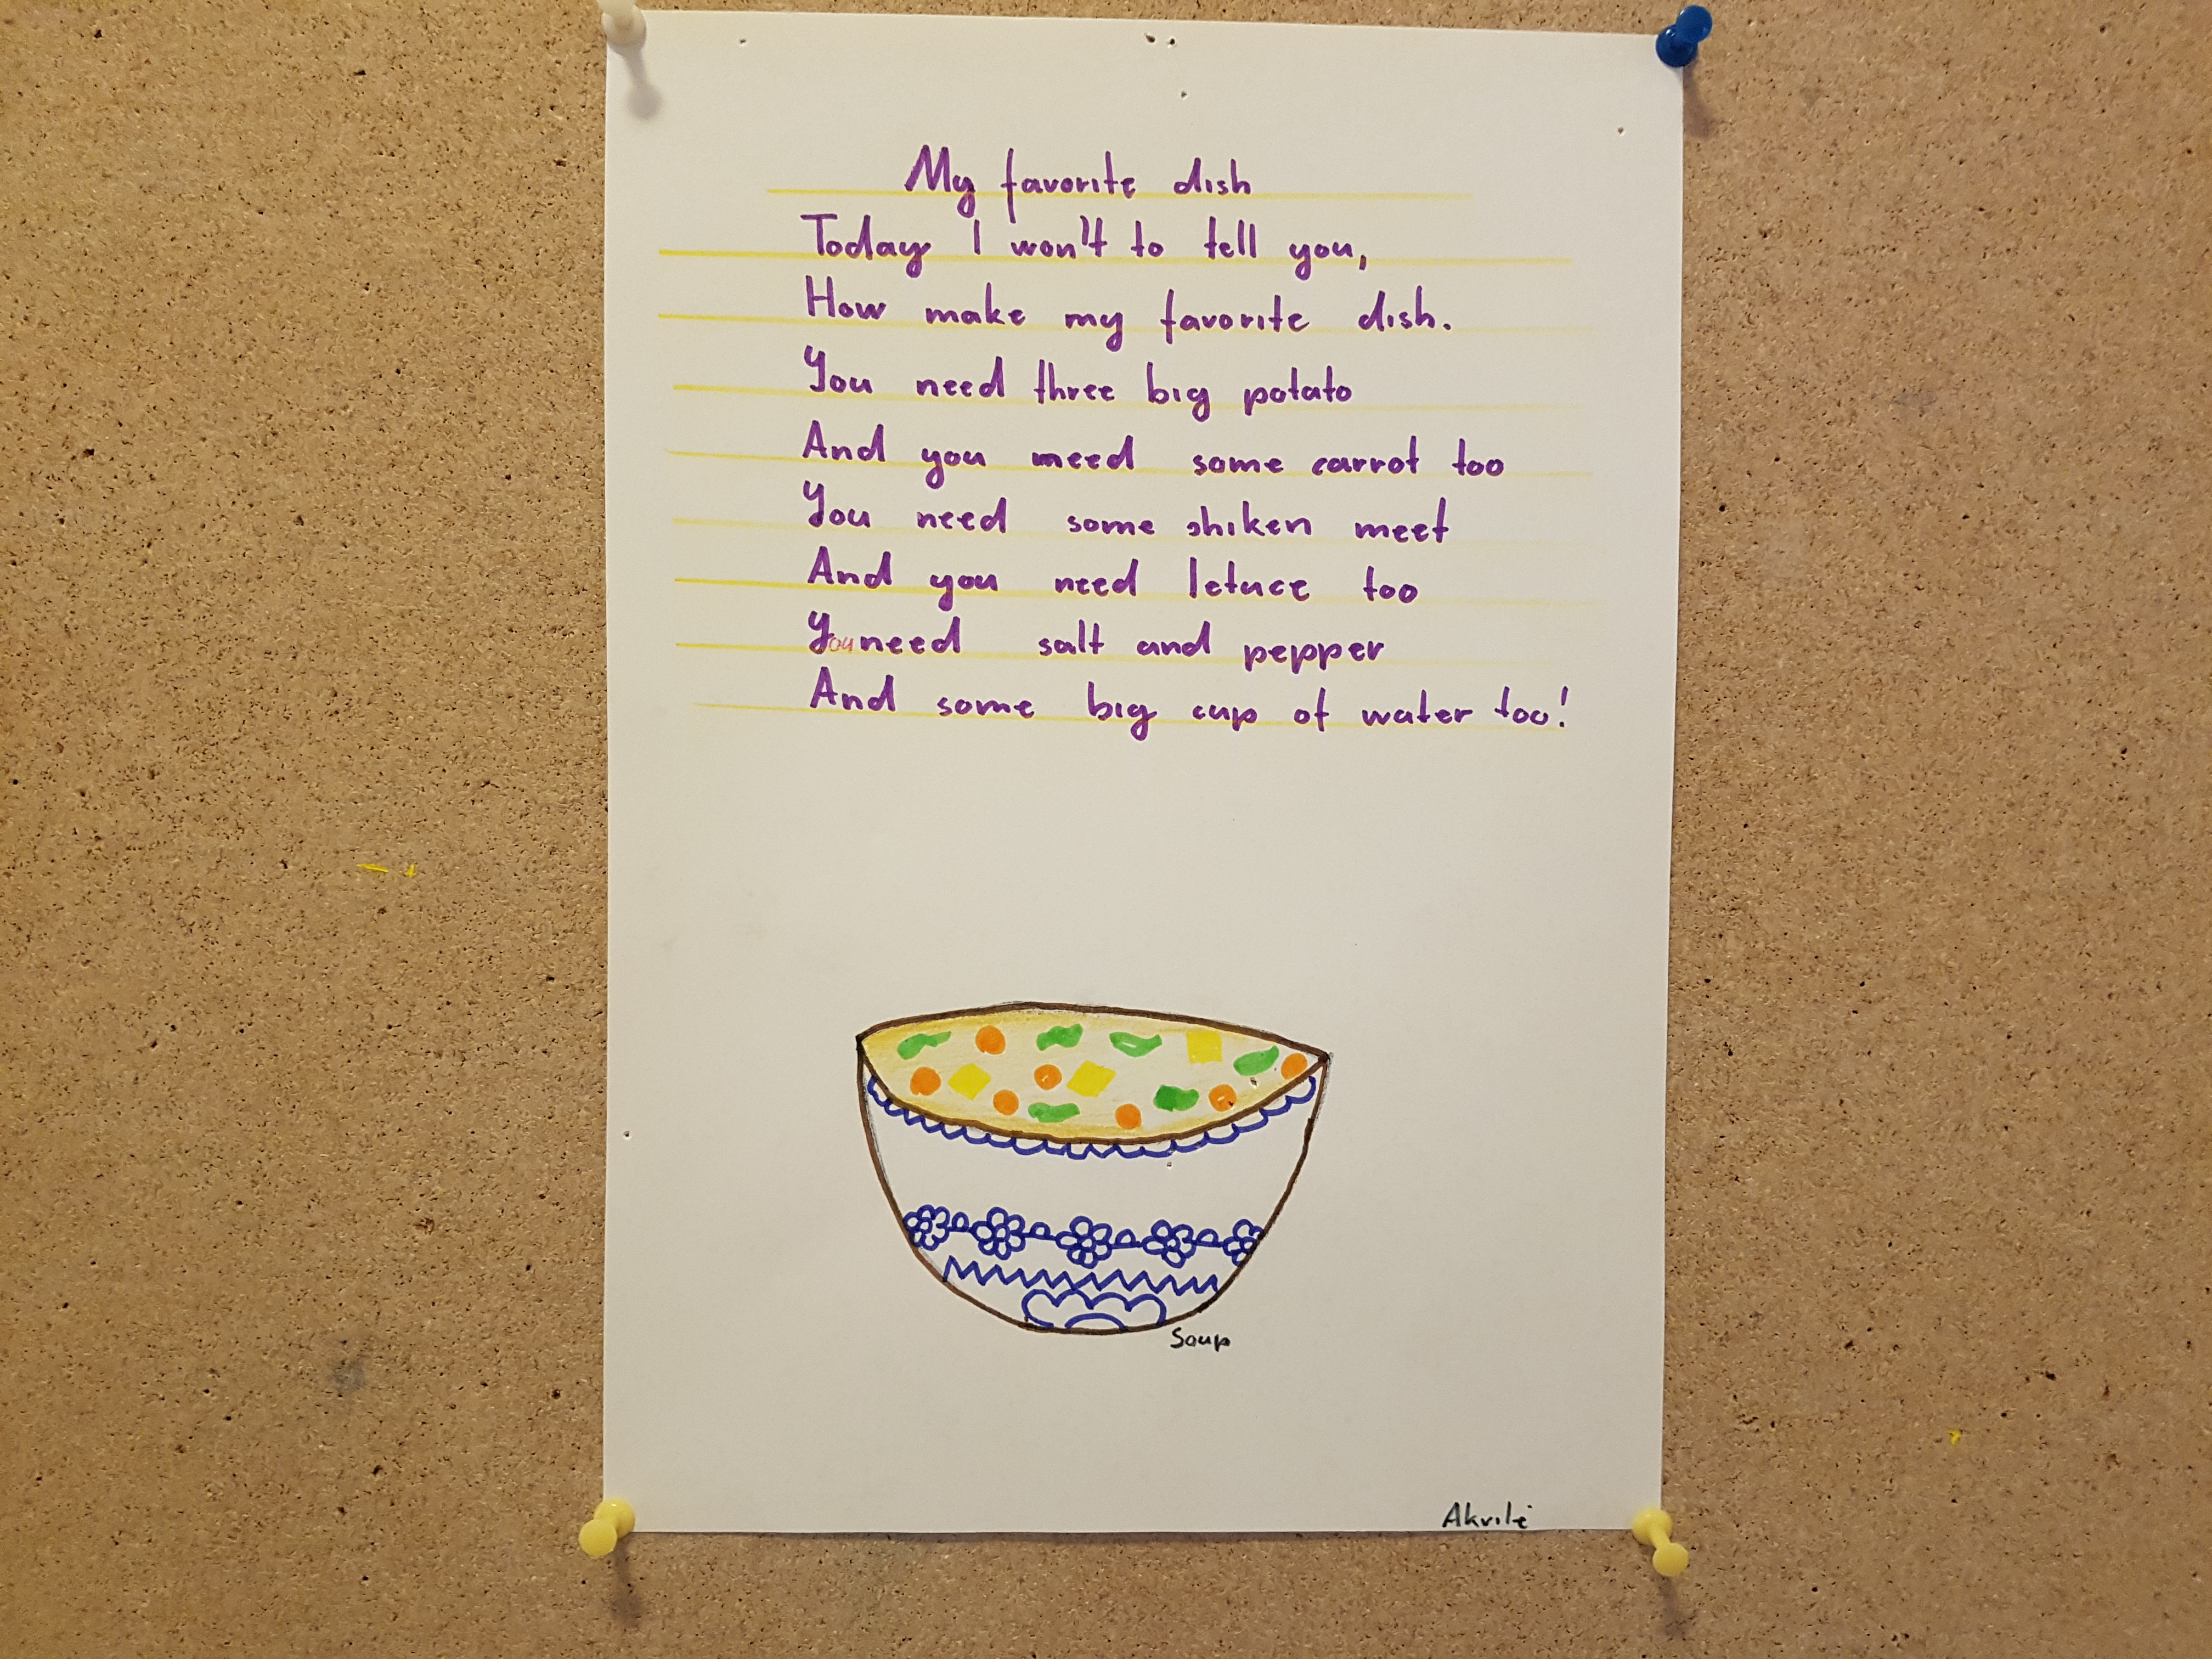 My favorite dish
Today I won't to tell you,
How make my favorite dish.
You need three big potato
And you need some carrot too
You need some shiken meet
And you need letuce too
You need salt and pepper
And some big cup of water too!
Soup
Akvilė